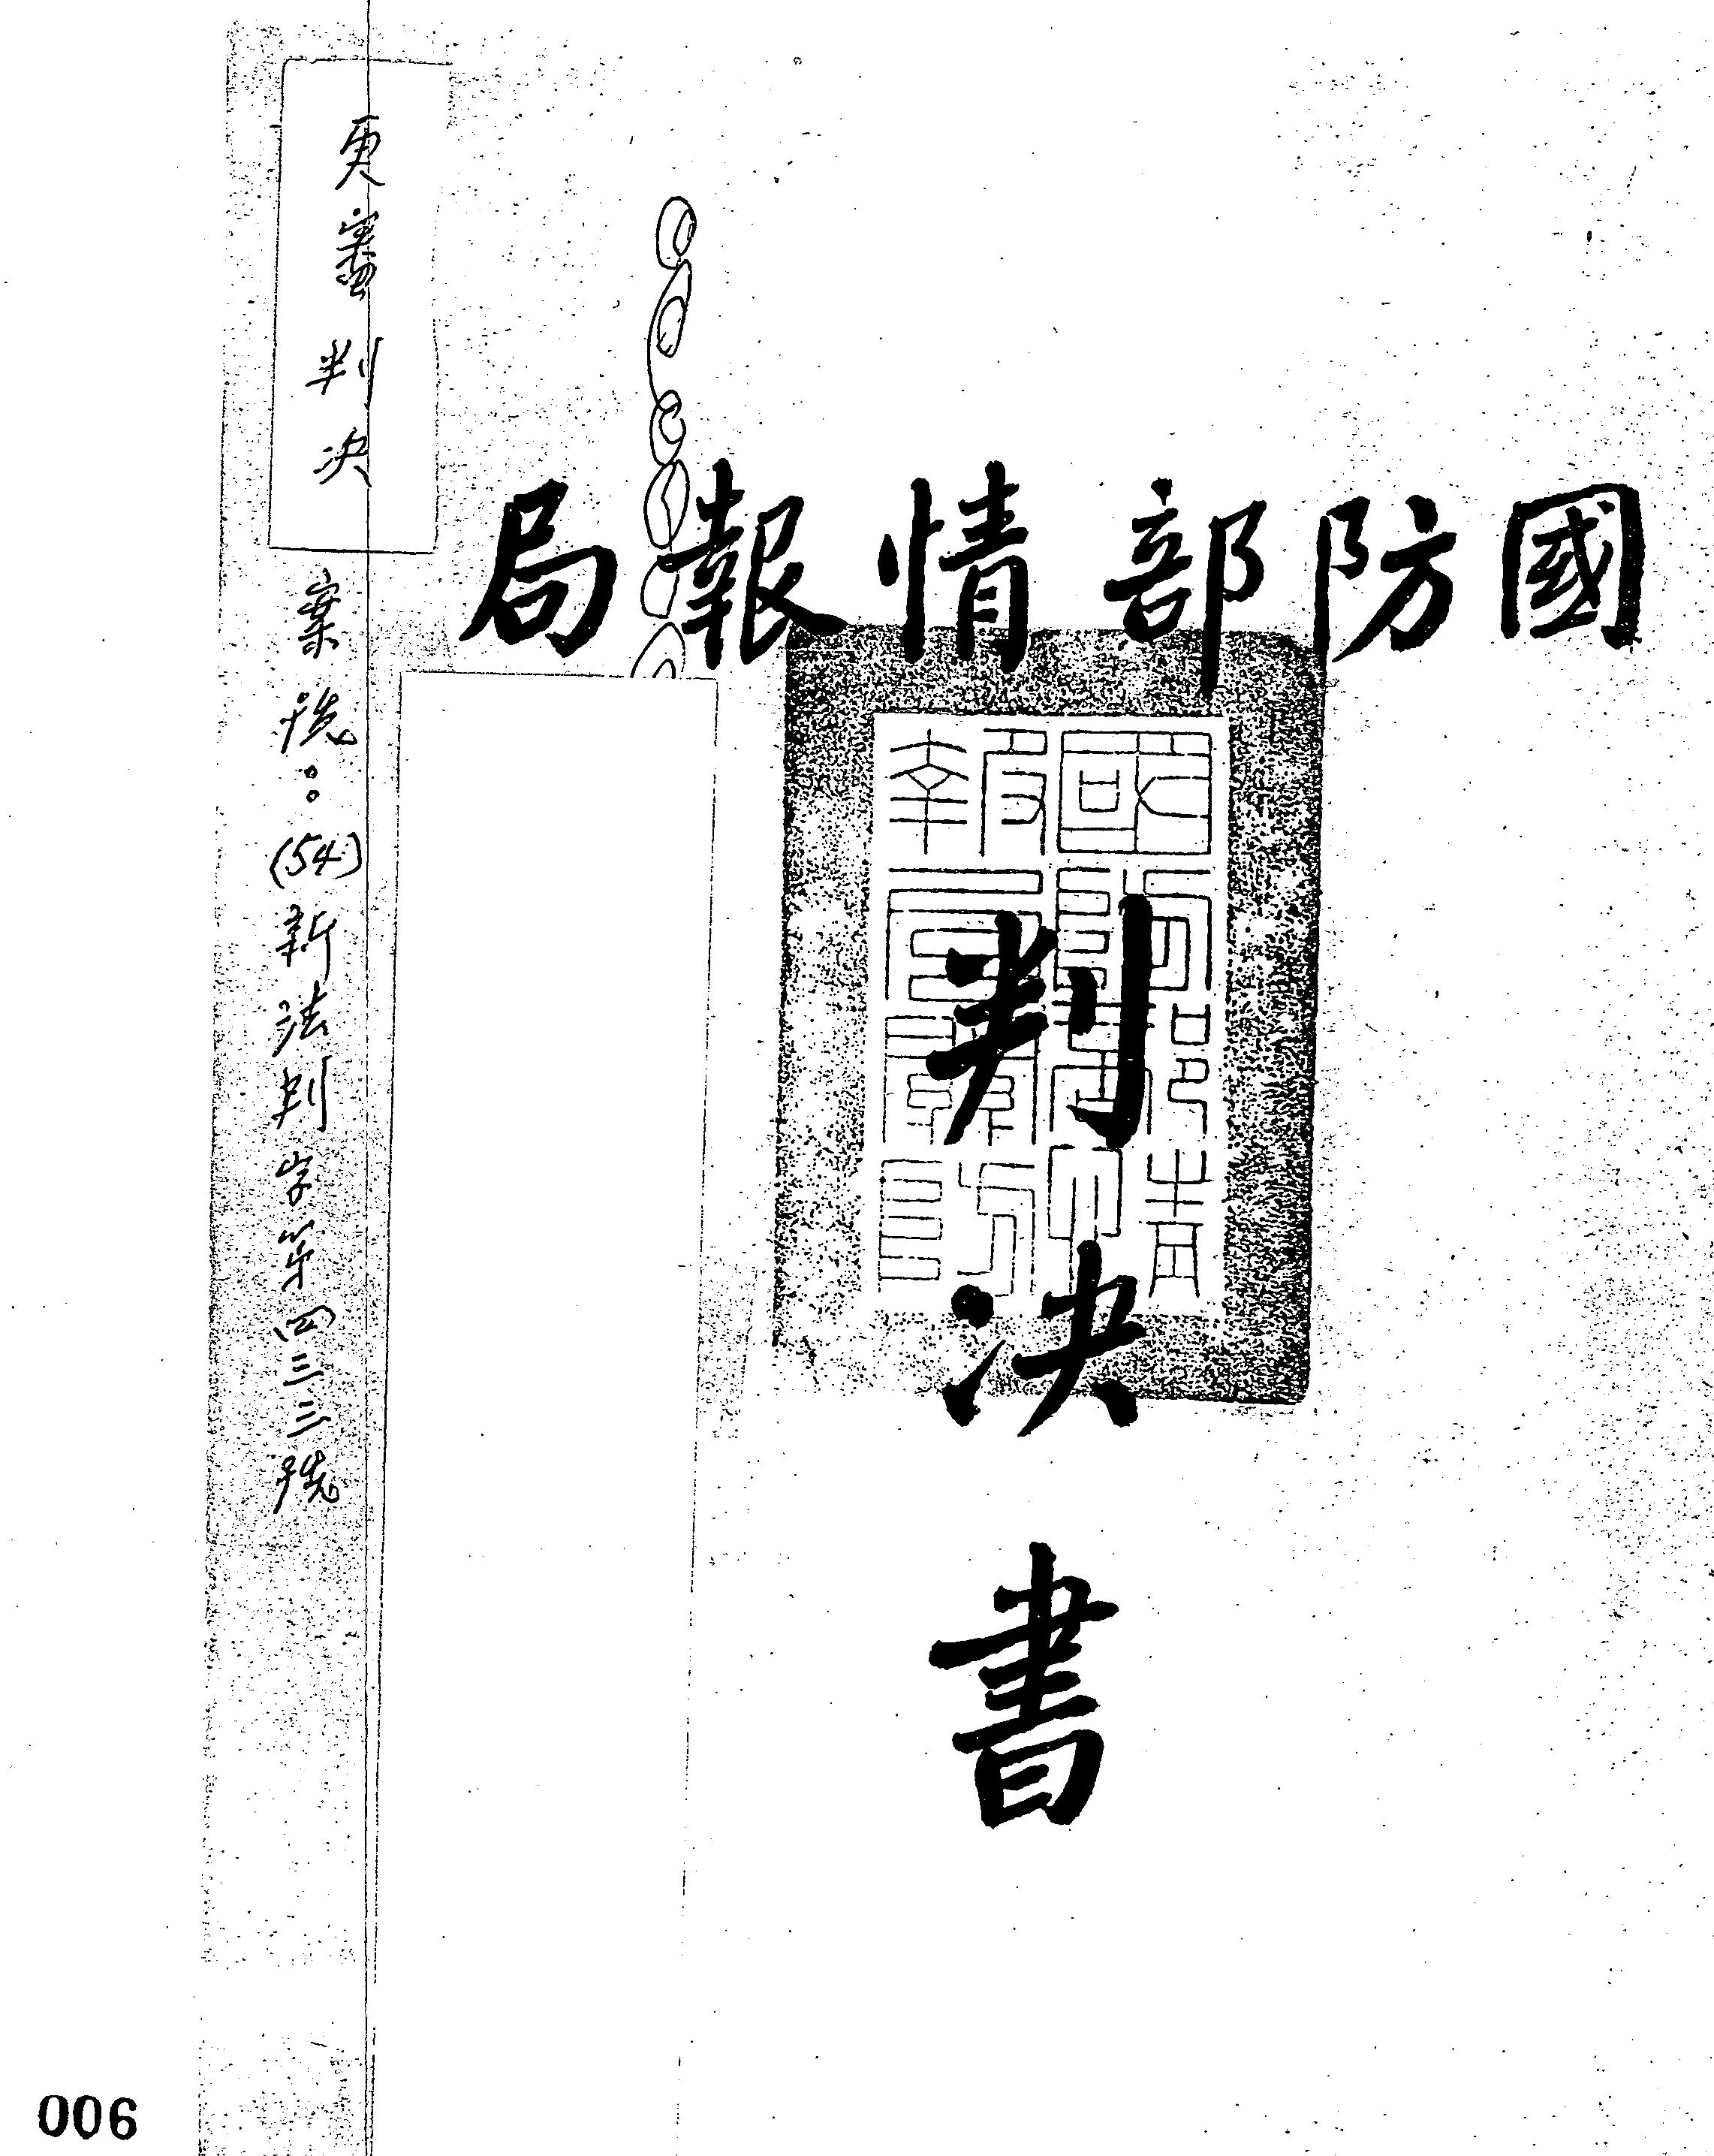 國防部情報局
國防部情
報局關防
判決書
更審判決
案號：(54)新法判字第四三三號
006